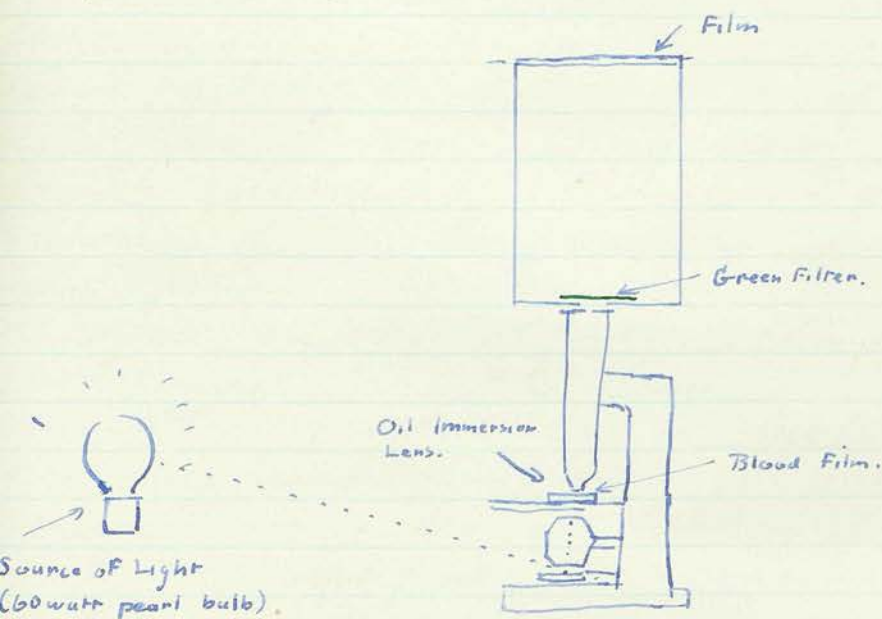 Film
Green Filter.
Oil Immersion
Lens.
Blood Film.
Source of Light
(60 watt pearl bulb).